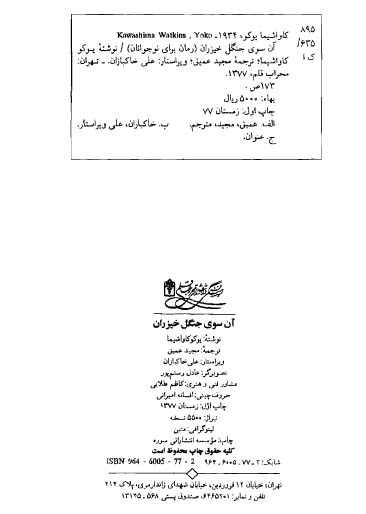 ۸۹۵
/۶۳۵
ک ا
کاواشیما یوکو، ۱۹۳۴ـ Kawashima Watkins , Yoko
آن سوی جنگل خیزران (رمان برای نوجوانان) / نوشتهٔ یوکو
کاواشیما؛ ترجمهٔ مجید عمیق؛ ویراستار: علی خاکبازان. ـ تهران:
محراب قلم، ۱۳۷۷.
۱۷۳ص .
بهاء: ۵۰۰۰ ریال
چاپ اول: زمستان ۷۷
الف. عمیق، مجید، مترجم. ب. خاکبازان، علی ویراستار.
ج. عنوان.
آن سوی جنگل خیزران
نوشتهٔ: یوکو کاواشیما
ترجمهٔ: مجید عمیق
ویراستار: علی خاکبازان
تصویرگر: عادل رستم‌پور
مشاور فنی و هنری: کاظم طلایی
حروف‌چینی: افسانه امیرانی
چاپ اوّل: زمستان ۱۳۷۷
تیراژ: ۵۵۰۰ نسخه
لیتوگرافی: متین
چاپ: مؤسسه انتشاراتی سوره
کلیه حقوق چاپ محفوظ است
شابک: ۲ـ۷۷ـ۶۰۰۵ـ۹۶۴ ISBN 964 - 6005 - 77 - 2
تهران، خیابان ۱۲ فروردین، خیابان شهدای ژاندارمری، پلاک ۲۱۴
تلفن و نمابر: ۶۴۶۵۲۰۱، صندوق پستی ۵۶۸ـ۱۳۱۴۵